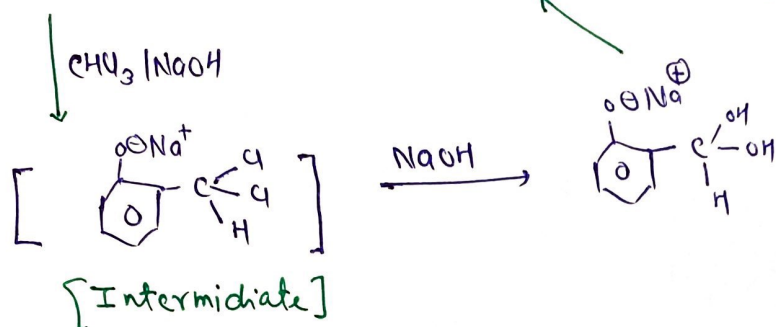 CHCl3/NaOH
O⊖Na+
Cl
C
Cl
H
NaOH
O⊖Na⊕
OH
C-OH
H
[Intermidiate]